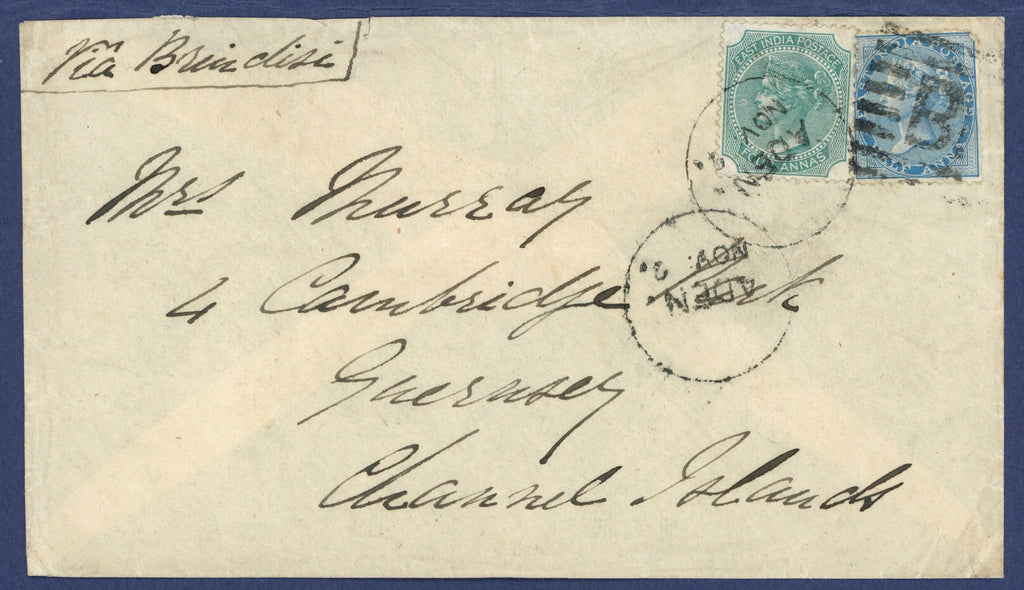 Via Brindisi
EAST INDIA POSTAGE
ANNAS
INDIA
ANNA
B
ADEN
NOV
ADEN
NOV. 3
Mrs Murray
4 Cambridge Park
Guernsey
Channel Islands